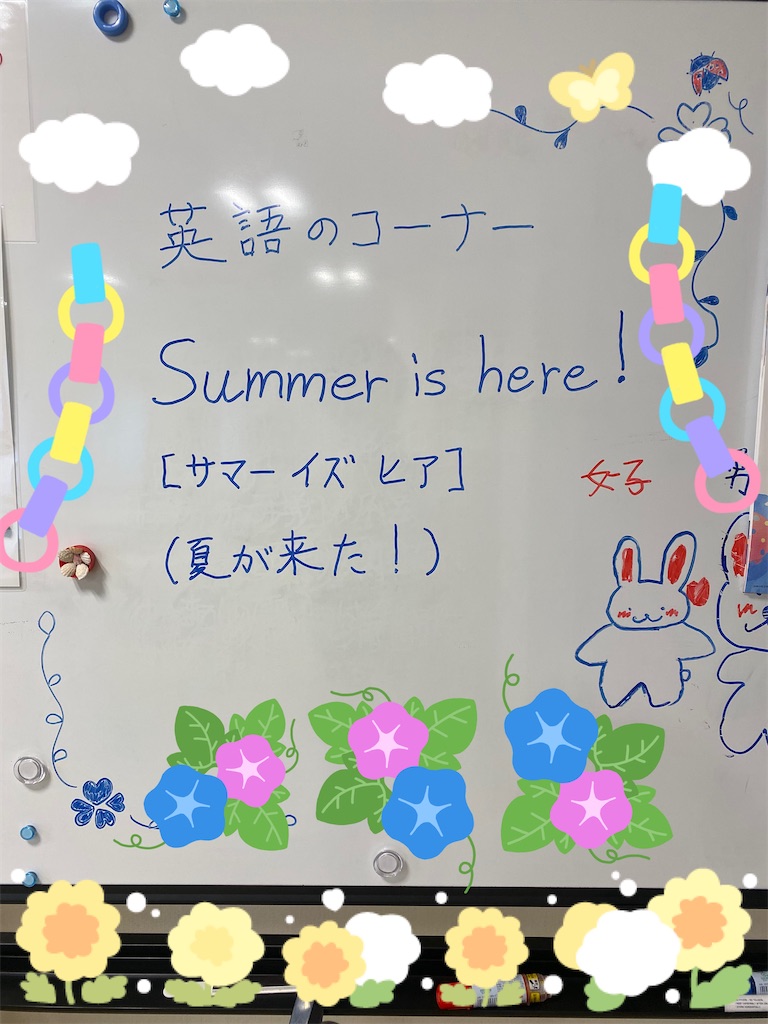 英語のコーナー
Summer is here!
[サマー イズ ヒア]
(夏が来た！)
女子
男